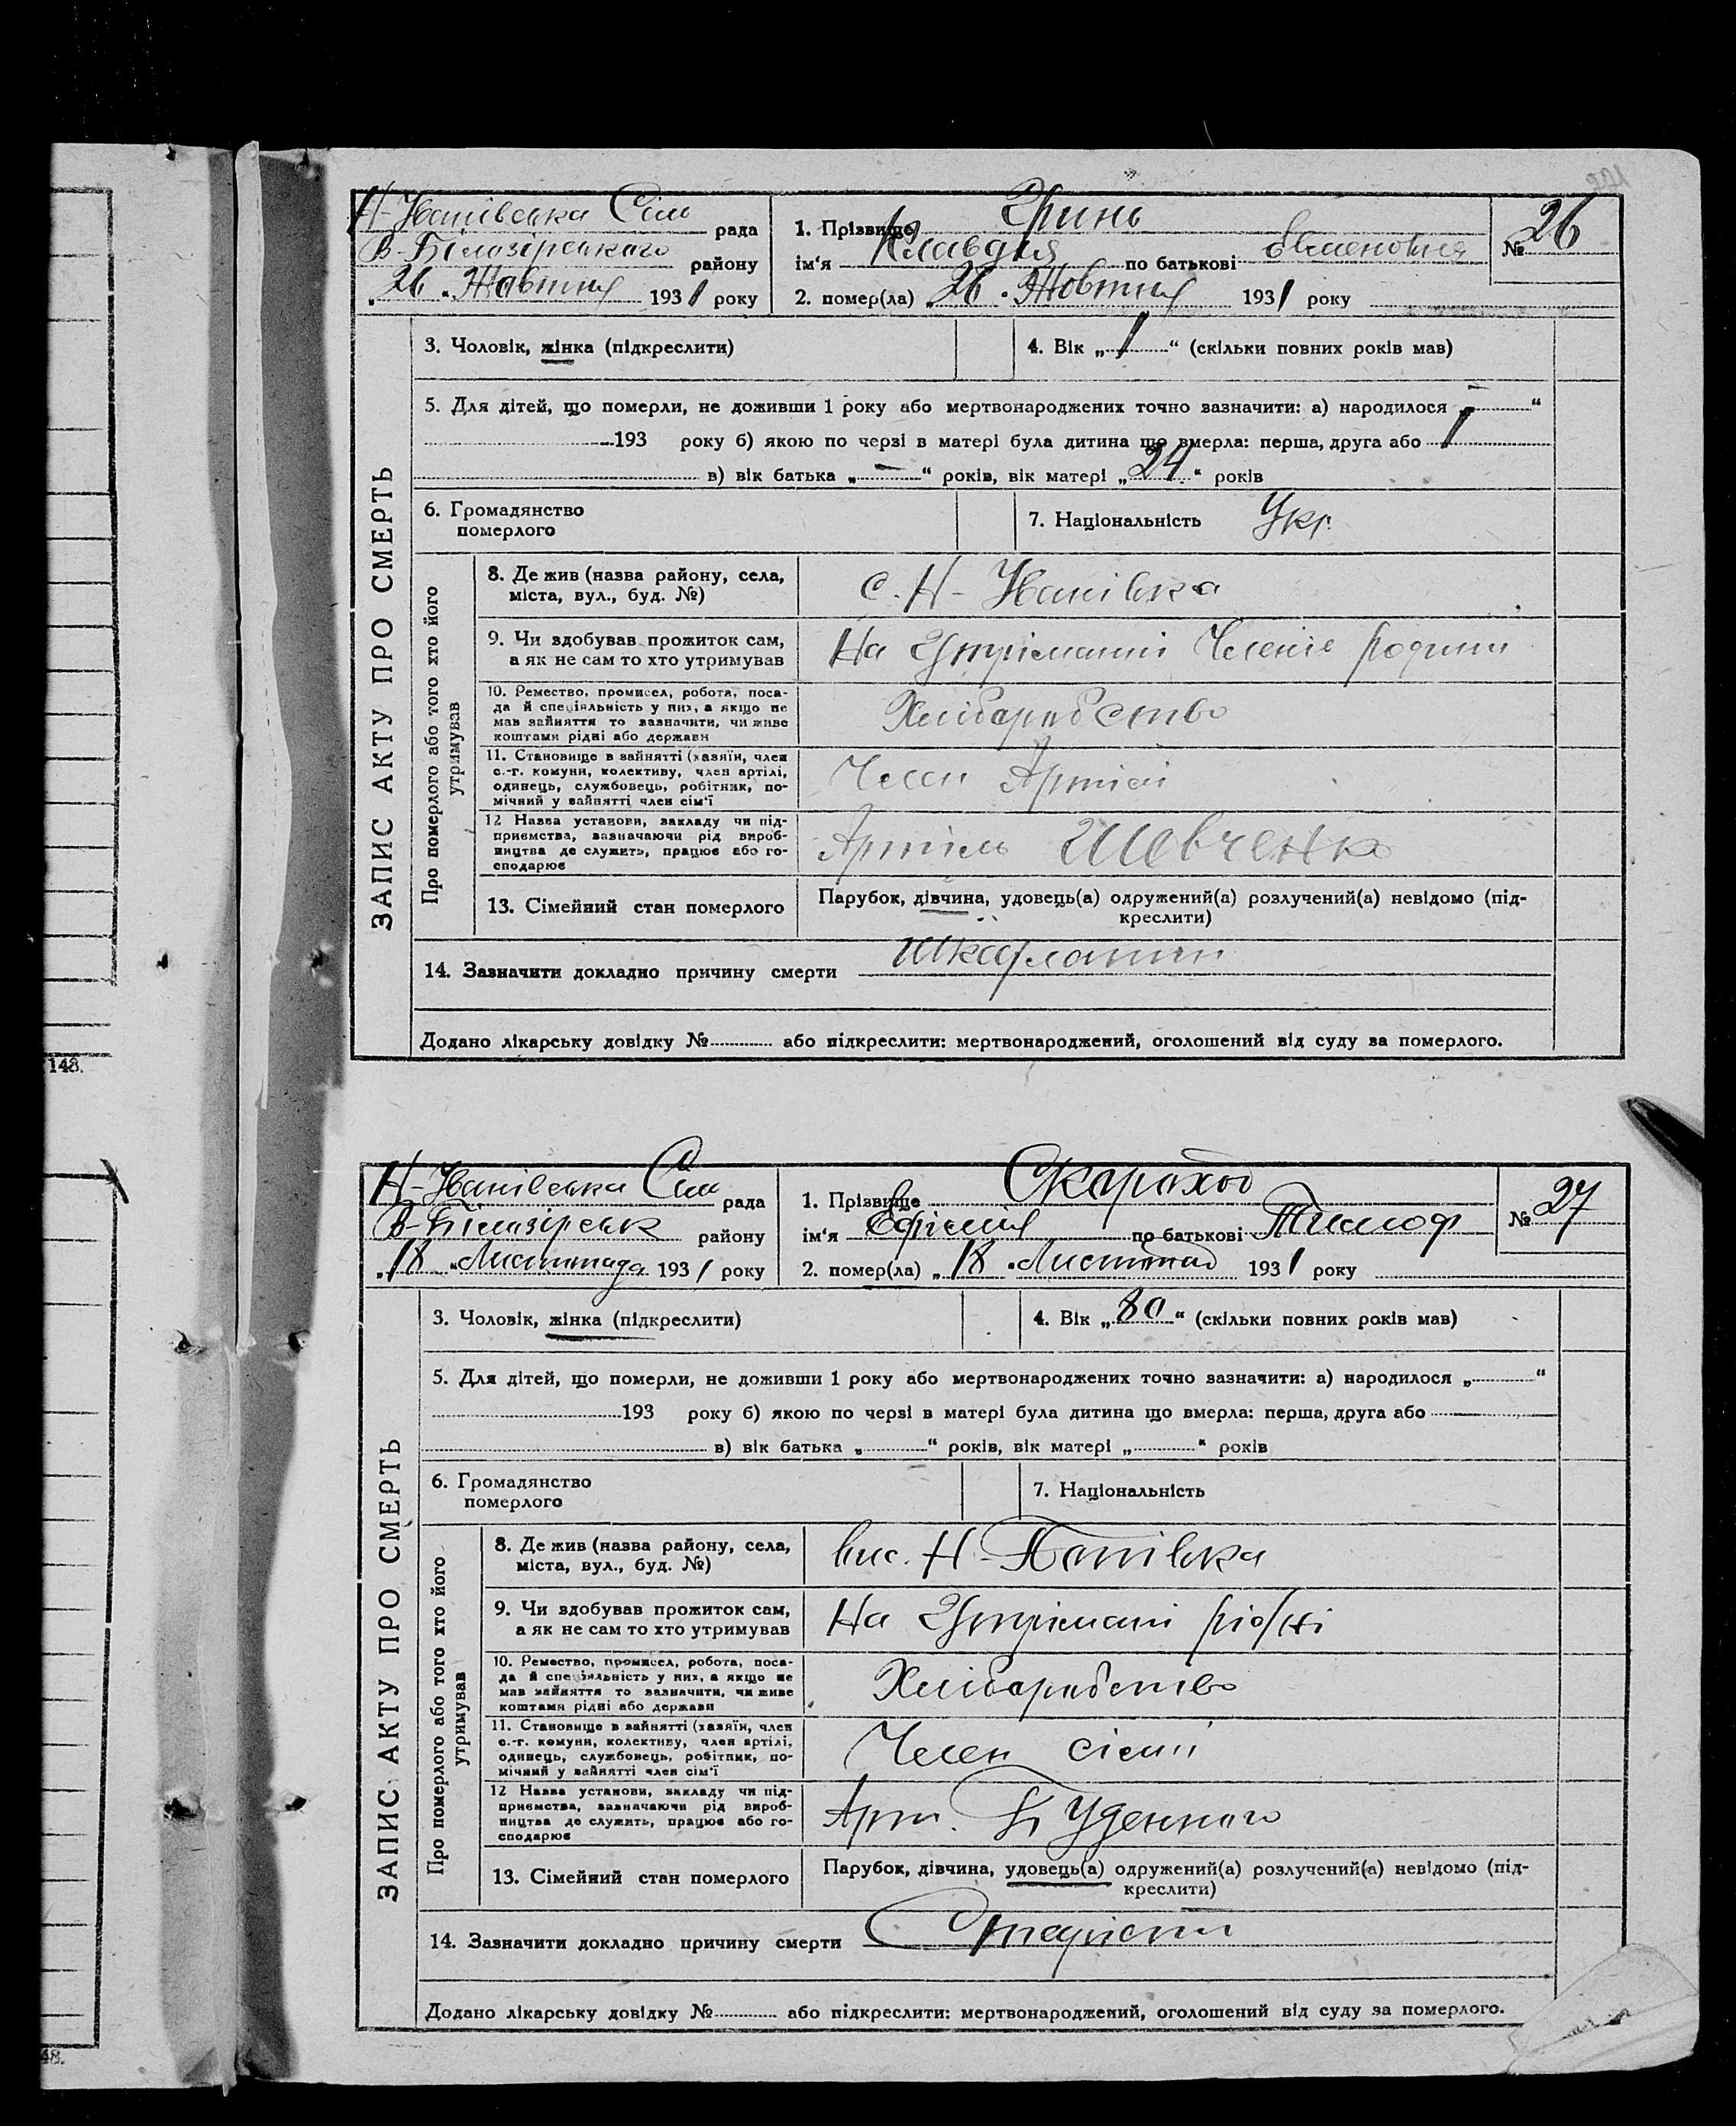 Н-Іванівська Сіль рада
В-Білозірського району
„26 “ Жовтня 1931 року
1. Прізвище Гринь
ім‘я Клавдія по батькові
2. помер(ла) „26 “ Жовтня 1931 року
№ 26
ЗАПИС АКТУ ПРО СМЕРТЬ
3. Чоловік, жінка (підкреслити)
4. Вік „ 1 “ (скільки повних років мав)
5. Для дітей, що померли, не доживши 1 року або мертвонароджених точно зазначити: а) народилося „ — “
193 року б) якою по черзі в матері була дитина що вмерла: перша, друга або 1
в) вік батька „ — “ років, вік матері „ 24 “ років
6. Громадянство
померлого
7. Національність Укр.
Про померлого або того хто його
утримував
8. Де жив (назва району, села,
міста, вул., буд. №)
с. Н-Іванівка
9. Чи здобував прожиток сам,
а як не сам то хто утримував
На Утріманні родини
10. Ремество, промисел, робота, поса-
да й спеціяльність у них, а якщо не
мав зайняття то зазначити, чи живе
коштами рідні або держави
Хліборобство
11. Становище в зайнятті (хазяїн, член
с.-г. комуни, колективу, член артілі,
одинець, службовець, робітник, по-
мічний у зайнятті член сім‘ї
Член Артілі
12 Назва установи, закладу чи під-
приємства, зазначаючи рід вироб-
ництва де служить, працює або го-
сподарює
Артіль Шевченка
13. Сімейний стан померлого
Парубок, дівчина, удовець(а) одружений(а) розлучений(а) невідомо (під-
креслити)
14. Зазначити докладно причину смерти Шкарлатин
Додано лікарську довідку № або підкреслити: мертвонароджений, оголошений від суду за померлого.
148.
Н-Іванівська Сіль рада
В-Білозірськ району
„18 “ Листопада 1931 року
1. Прізвище Скороход
ім‘я Єфімія по батькові Тимоф
2. помер(ла) „18 “ Листопад 1931 року
№ 27
ЗАПИС АКТУ ПРО СМЕРТЬ
3. Чоловік, жінка (підкреслити)
4. Вік „ 80 “ (скільки повних років мав)
5. Для дітей, що померли, не доживши 1 року або мертвонароджених точно зазначити: а) народилося „ “
193 року б) якою по черзі в матері була дитина що вмерла: перша, друга або
в) вік батька „ “ років, вік матері „ “ років
6. Громадянство
померлого
7. Національність
Про померлого або того хто його
утримував
8. Де жив (назва району, села,
міста, вул., буд. №)
вис. Н-Попівка
9. Чи здобував прожиток сам,
а як не сам то хто утримував
На Утрімані рідні
10. Ремество, промисел, робота, поса-
да й спеціяльність у них, а якщо не
мав зайняття то зазначити, чи живе
коштами рідні або держави
Хліборобство
11. Становище в зайнятті (хазяїн, член
с.-г. комуни, колективу, член артілі,
одинець, службовець, робітник, по-
мічний у зайнятті член сім‘ї
Член сіємії
12 Назва установи, закладу чи під-
приємства, зазначаючи рід вироб-
ництва де служить, працює або го-
сподарює
Арт. Буденного
13. Сімейний стан померлого
Парубок, дівчина, удовець(а) одружений(а) розлучений(а) невідомо (під-
креслити)
14. Зазначити докладно причину смерти Старість
Додано лікарську довідку № або підкреслити: мертвонароджений, оголошений від суду за померлого.
48.